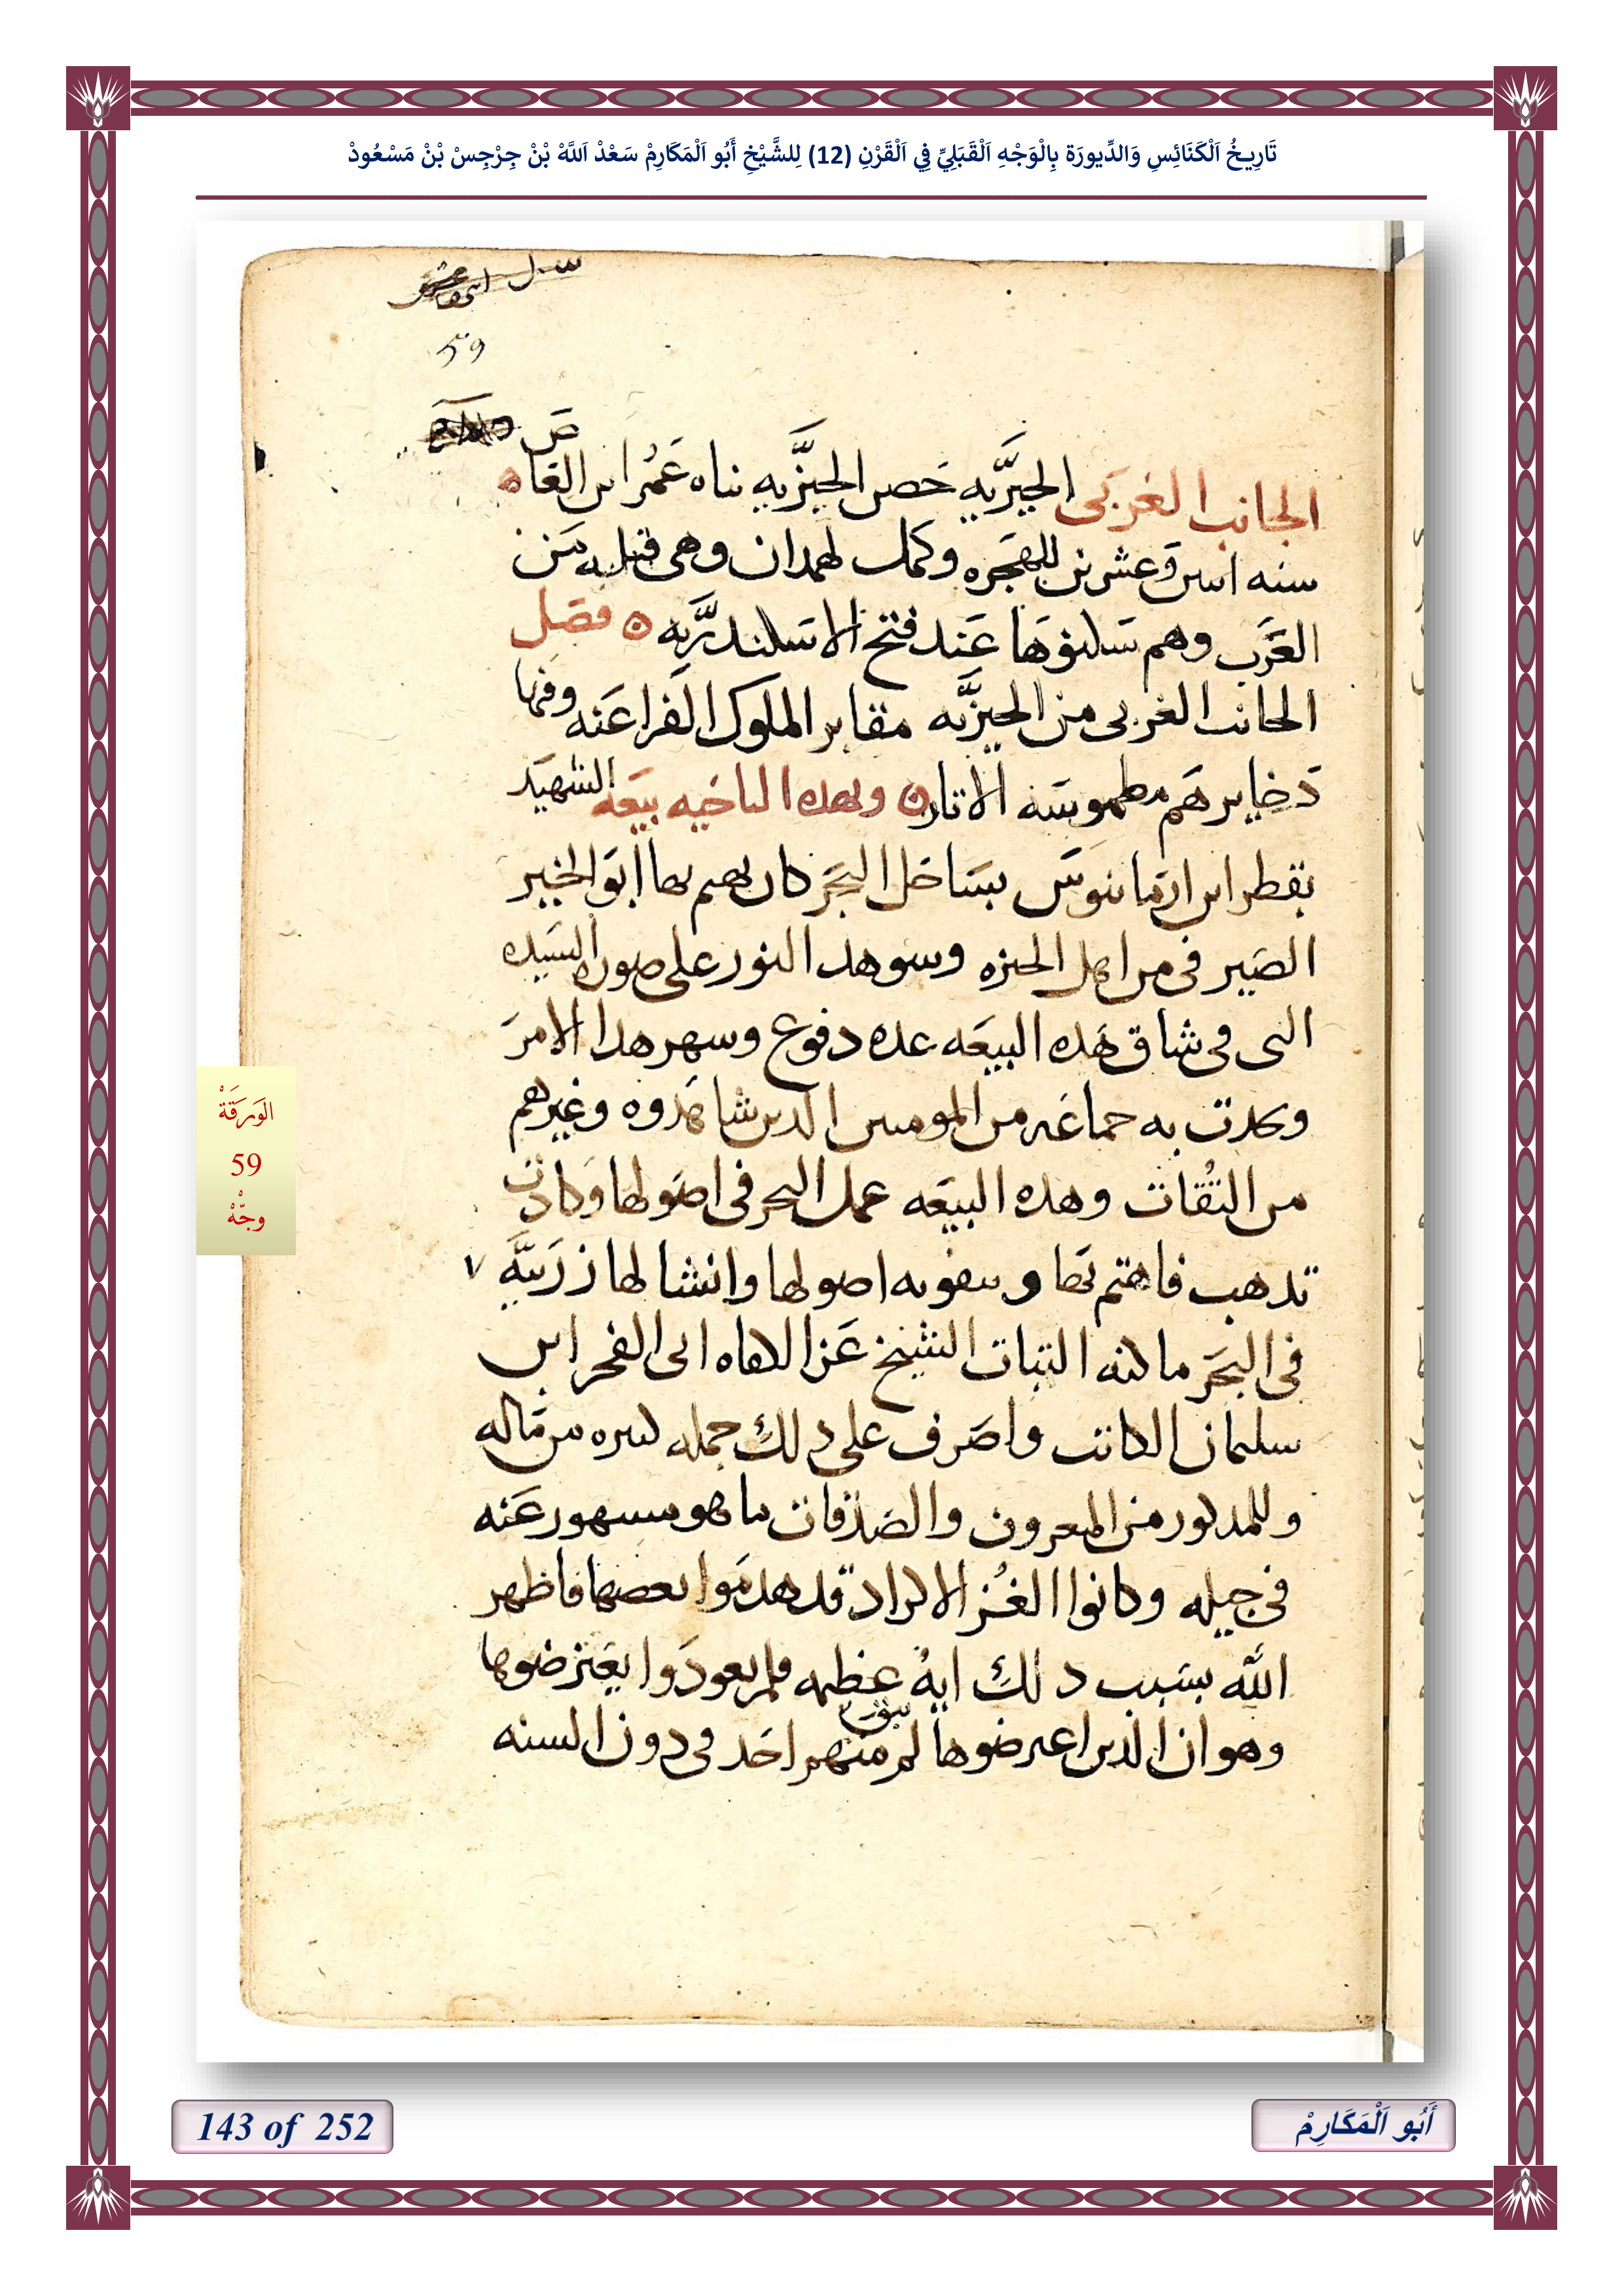 تَارِيخُ اَلْكَنَائِسِ وَالدِّيورَة بِالْوَجْهِ اَلْقَبَلِيِّ فِي اَلْقَرْنِ (12) لِلشَّيْخِ أَبُو اَلْمَكَارِمْ سَعْدْ اَللَّهْ بْنْ جِرْجِسْ بْنْ مَسْعُودْ
59
ص
الجانب الغربى الجيزيه حصن الجيزيه بناه عمر ابن العاه
سنه اسن وعشرين للهجره وكمل لهمدان وهى قبيله من
العرب وهم سكنوها عند فتح الاسكندريه ه فصل
الجانب الغربى من الجيزيه مقابر الملوك الفراعنه وفيها
دخايرهم مطموسه الاثار ه وبهده الناحيه بيعه الشهيد
بقطر ابن ارمانوس بساحل البحر كان يهم بها ابو الخير
الصيرفى من اهل الجيزه وسوهد النور على صوره السيده
التى فى شاق هده البيعه عده دفوع وسهر هدا الامر
وتحدت به جماعه من المومنين الدين شاهدوه وغيرهم
من الثقات وهده البيعه عمل البحر فى اصولها وكادت
تدهب فاهتم بها وبتقويه اصولها وانشا لها زربيه
فى البحر مالنه الثبات الشيخ عز الكفاه ابى الفخر ابن
سليمان الكاتب واصرف على دلك جمله كبيره من ماله
وللمدكور من المعروف والصدقات ما هو مسهور عنه
فى جيله وكانوا الغز الاكراد قد هدموا بعضها فاظهر
الله بسبب دلك ايه عظيمه فلم يعودوا يعترضوها
وهو ان الدين اعترضوها لم يبق منهم احد فى دون السنه
الوَرَقَةْ
59
وجْهْ
143 of 252
أَبُو اَلْمَكَارِمْ